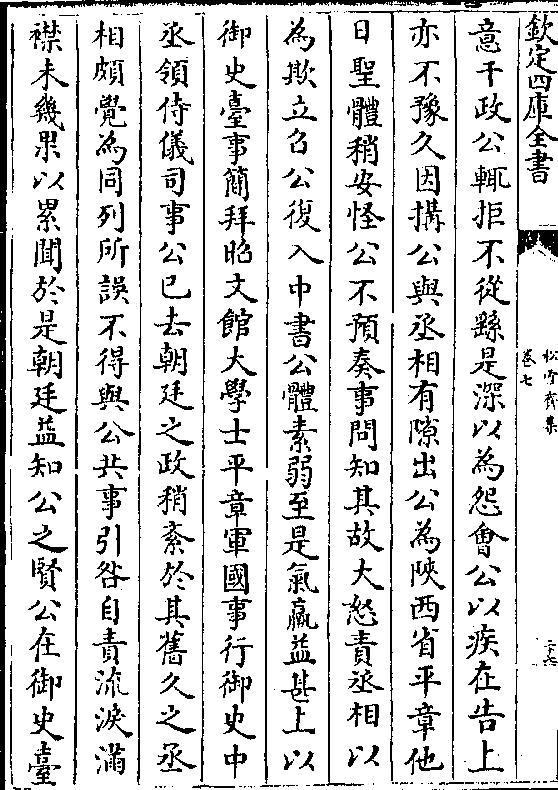 欽定四庫全書
卷七
意干政公輒拒不從繇是深以為怨會公以疾在告上
亦不豫久因搆公與丞相有隙出公為陜西省平章他
日聖體稍安怪公不預奏事問知其故大怒責丞相以
為欺立召公復入中書公體素弱至是氣羸益甚上以
御史臺事簡拜昭文館大學士平章軍國事行御史中
丞領侍儀司事公已去朝廷之政稍紊於其舊久之丞
相頗覺為同列所誤不得與公共事引咎自責流淚滿
襟未幾果以累聞於是朝廷益知公之賢公在御史臺